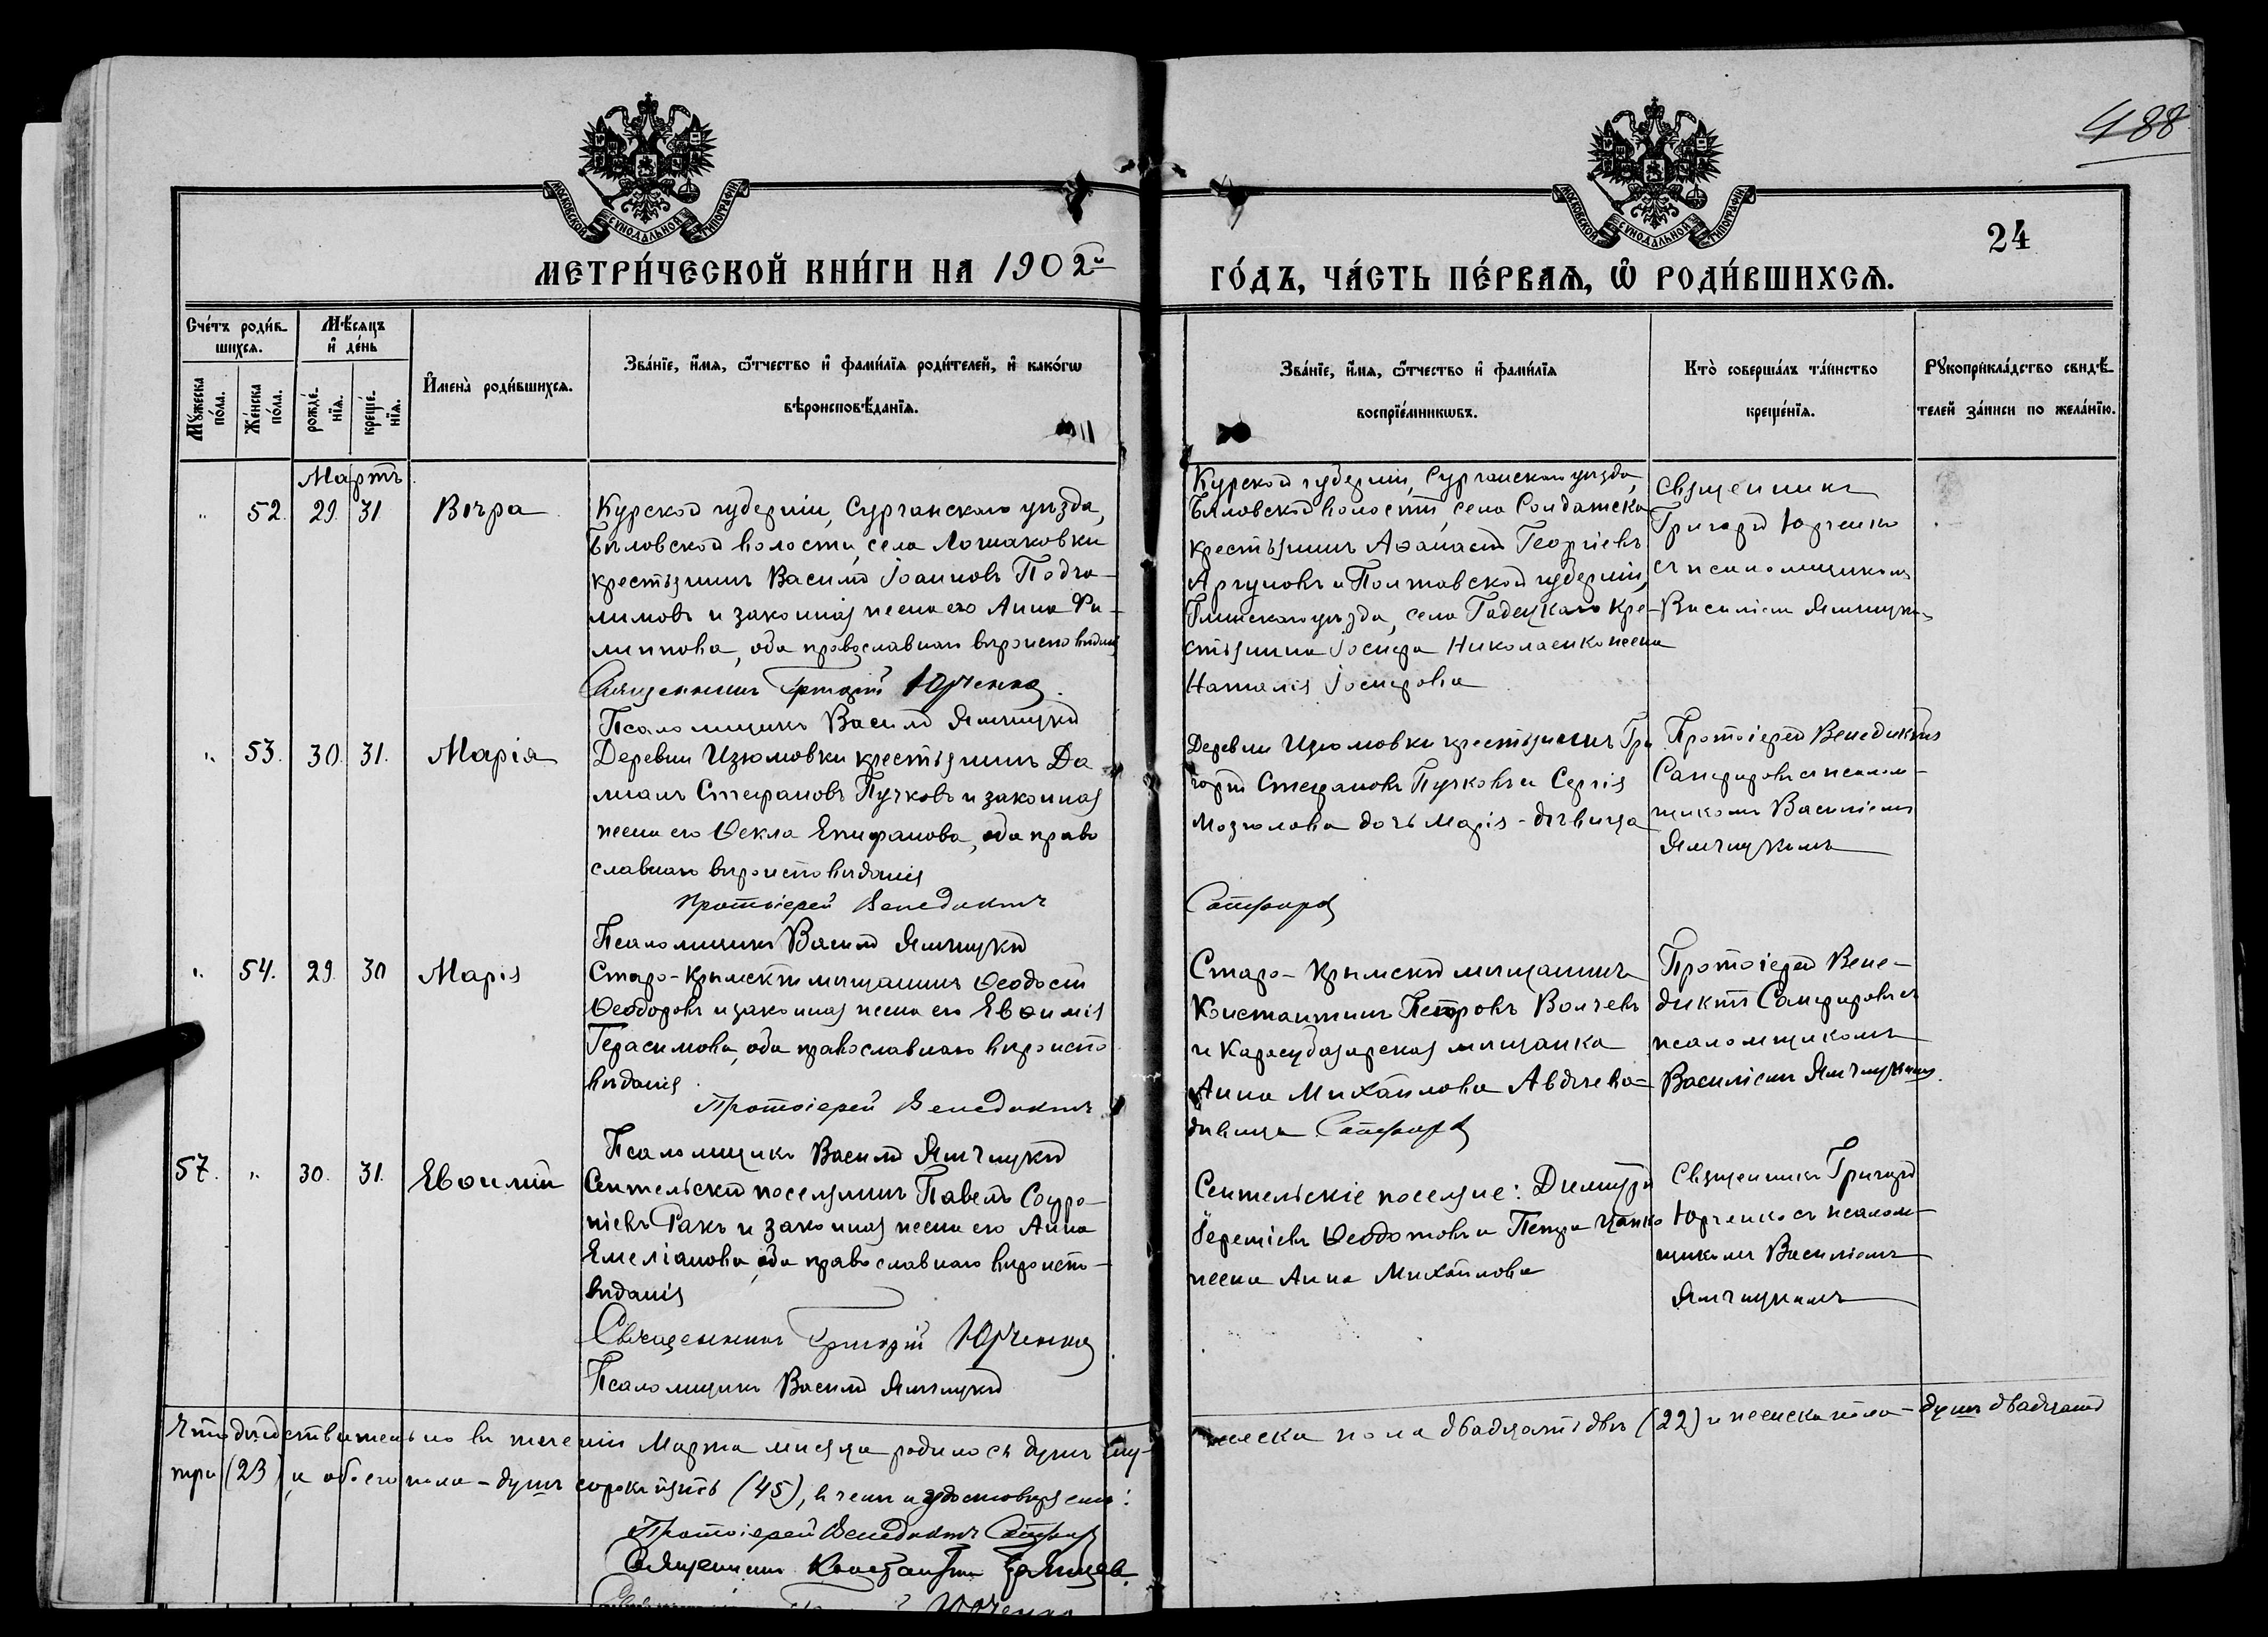 488
МОСКОВСКОЙ СѴНОДАЛЬНОЙ ТИПОГРАФІИ
МОСКОВСКОЙ СѴНОДАЛЬНОЙ ТИПОГРАФІИ
24
МЕТРИ́ЧЕСКОЙ КНИ́ГИ НА 1902й
ГО́ДЪ, ЧА́СТЬ ПЕ́РВАѦ, Ѡ҆ РОДИ́ВШИХСѦ.
Сче́тъ роди́в-
шихся.
Мѣ́сяцъ
и҆ де́нь
Мꙋ́жеска
по́ла.
Же́нска
по́ла.
рожде́-
нїя.
креще́-
нїя.
И҆мена̀ роди́вшихся.
Зва́нїе, и҆́мя, ѻ҆́тчество и҆ фами́лїя роди́телей, и҆ како́гѡ
вѣроисповѣ́данїя.
Зва́нїе, и҆́мя, ѻ҆́тчество и҆ фами́лїя
воспрїе́мникѡвъ.
Кто̀ соверша́лъ та́инство
креще́нїя.
Рꙋкоприкла́дство свидѣ́-
телей за́писи по жела́нїю.
Мартъ
" 52. 29. 31 Вѣра
Курской губерніи, Суджанскаго уѣзда,
Бѣловской волости, села Лошаковки
крестьянинъ Василій Іоанновъ Подчо-
лимовъ и законная жена его Анна Фи-
липпова, оба православнаго вѣроисповѣданія
Священникъ Григорій Юрченко.
Псаломщикъ Василій Ямчицкій
Курской губерніи, Суджанскаго уѣзда,
Бѣловской волости, села Солдатска
крестьянинъ Аѳанасій Георгіевъ
Аргуновъ и Полтавской губерніи,
уѣзда, села кре-
стьянина Іосифа Николаенко жена
Наталія Іосифова
Священникъ
Григорій Юрченко
съ псаломщикомъ
Василіемъ Ямчицкимъ
" 53. 30. 31. Марія
Деревни Изюмовки крестьянинъ Да-
міанъ Стефановъ Пучковъ и законная
жена его Ѳекла Епифанова, оба право
славнаго вѣроисповѣданія
Протоіерей Венедиктъ
Псаломщикъ Василій Ямчицкій
Деревни Изюмовки крестьянинъ Гри
горій Стефановъ Пучковъ и Сергія
Мозолова дочь Марія - дѣвица
Сапфировъ
Протоіерей Венедиктъ
Сапфировъ съ псалом-
щикомъ Василіемъ
Ямчицкимъ
" 54. 29. 30 Марія
Старо-Крымскій мѣщанинъ Ѳеодосій
Ѳеодоровъ и законная жена его Евѳимія
Герасимова, оба православнаго вѣроиспо
вѣданія
Протоіерей Венедиктъ
Псаломщикъ Василій Ямчицкій
Старо-Крымскій мѣщанинъ
Константинъ Петровъ Волчевъ
и Карасубазарская мѣщанка
Анна Михайлова Авдѣева -
дѣвица Сапфировъ
Протоіерей Вене-
диктъ Сапфировъ съ
псаломщикомъ
Василіемъ Ямчицкимъ.
57. " 30. 31. Евѳимій
поселянинъ Павелъ Софро-
ніевъ Ракъ и законная жена его Анна
Емеліанова, оба православнаго вѣроиспо-
вѣданія
Священникъ Григорій Юрченко
Псаломщикъ Василій Ямчицкій
поселяне: Димитрій
Ѳеодотовъ и Петра Цапко
жена Анна Михайлова
Священникъ Григорій
Юрченко съ псалом-
щикомъ Василіемъ
Ямчицкимъ
Что дѣйствительно въ теченіи Марта мѣсяца родилось душъ му-
жеска пола двадцать двѣ (22) и женска пола - душъ двадцать
три (23) и обоего пола - душъ сорокъ пять (45), въ чемъ и удостовѣряемъ:
Протоіерей Венедиктъ Сапфировъ
Священникъ Константинъ
Юрченко